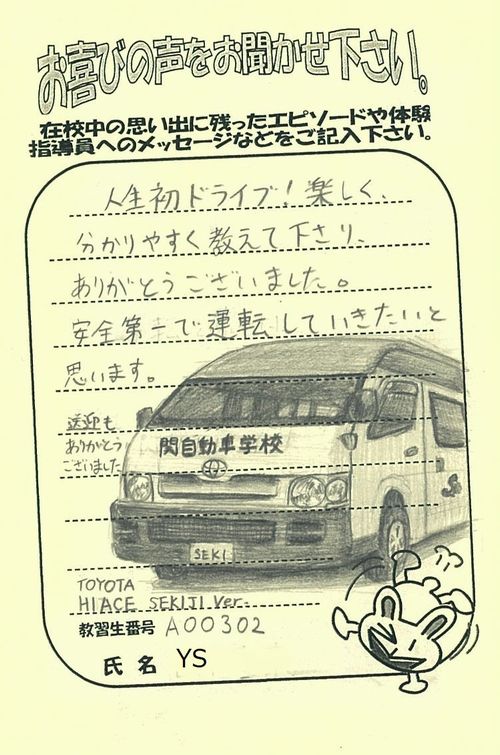 お喜びの声をお聞かせ下さい。
在校中の思い出に残ったエピソードや体験
指導員へのメッセージなどをご記入下さい。
人生初ドライブ！楽しく、
分かりやすく教えて下さり、
ありがとうございました。
安全第一で運転していきたいと
思います。
送迎も
ありがとう
ございました
関自動車学校
SEKI
TOYOTA
HIACE SEKIJI Ver.
教習生番号 A00302
氏名 YS